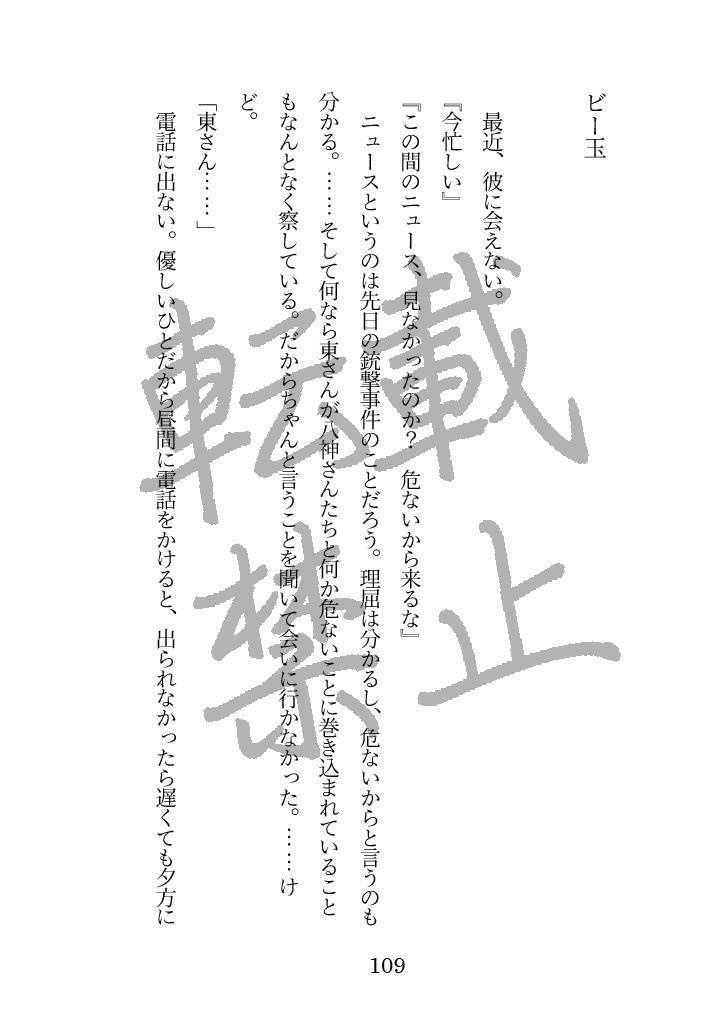 ビー玉
最近、彼に会えない。
『今忙しい』
『この間のニュース、見なかったのか？　危ないから来るな』
ニュースというのは先日の銃撃事件のことだろう。理屈は分かるし、危ないからと言うのも
分かる。……そして何なら東さんが八神さんたちと何か危ないことに巻き込まれていること
もなんとなく察している。だからちゃんと言うことを聞いて会いに行かなかった。……け
ど。
「東さん……」
電話に出ない。優しいひとだから昼間に電話をかけると、出られなかったら遅くても夕方に
109
転載
禁止